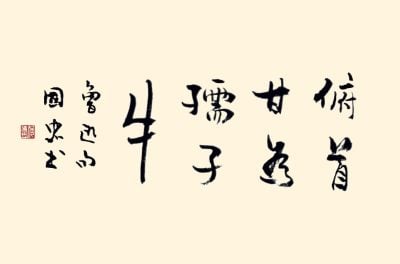 俯首
甘為
孺子
牛
魯迅句
國忠书